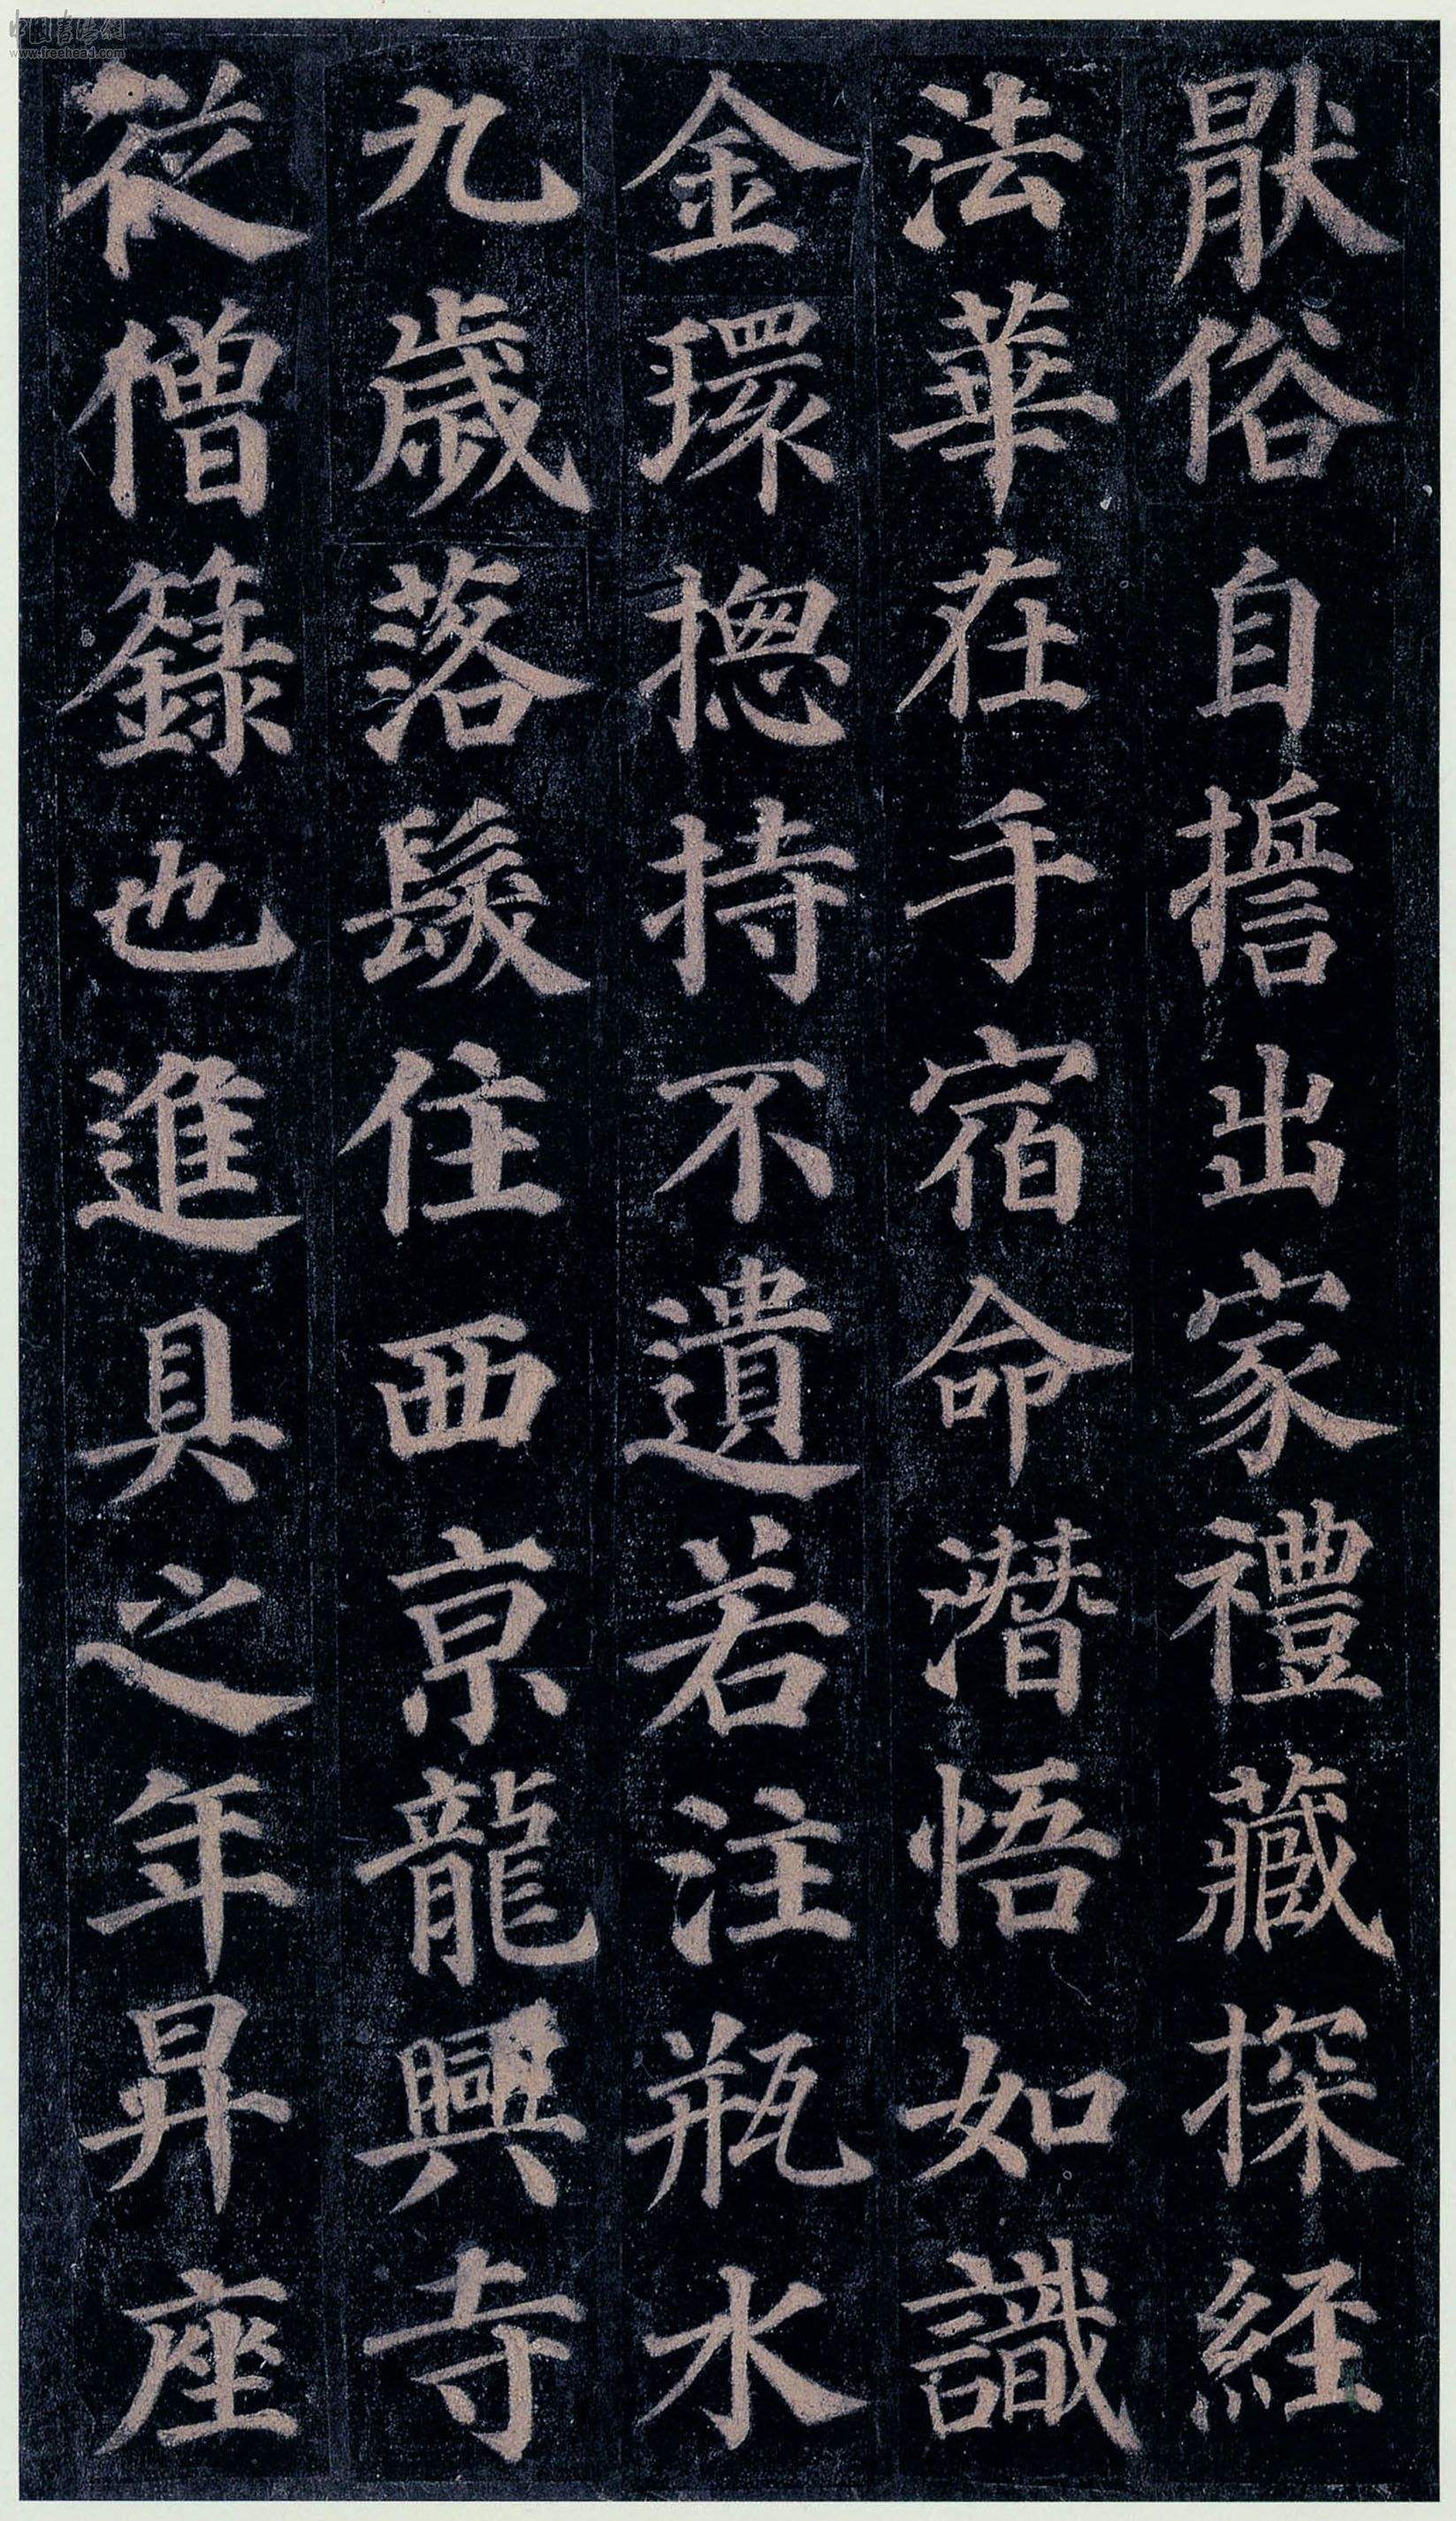 猒俗自誓出家禮藏探經
法華在手宿命潛悟如識
金環揔持不遺若注瓶水
九歲落髮住西京龍興寺
從僧籙也進具之年昇座
中国書法網
www.freehead.com